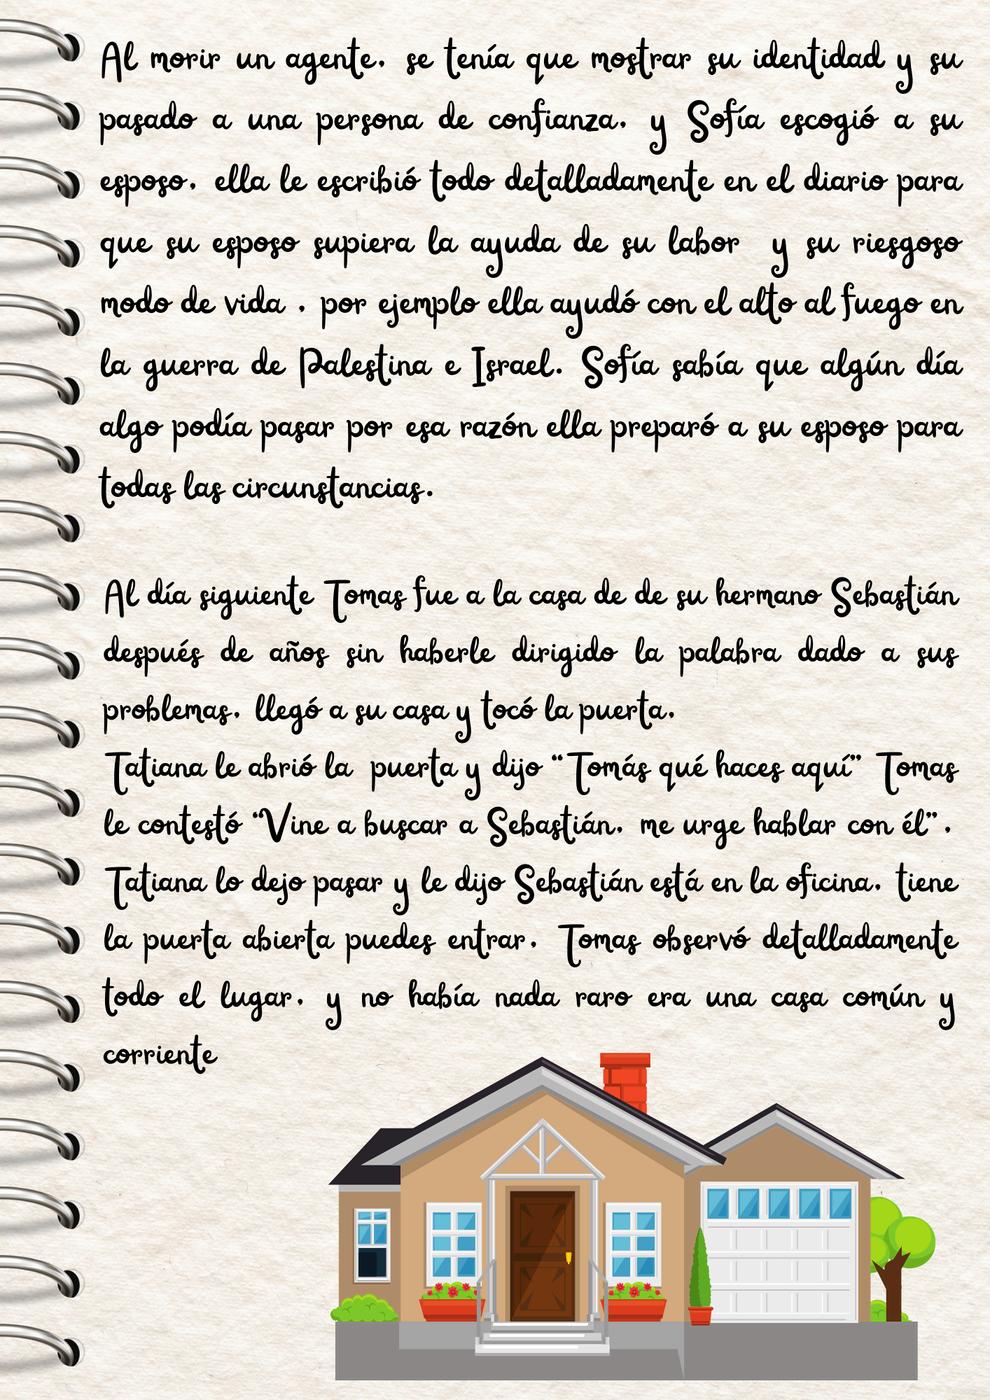 Al morir un agente, se tenía que mostrar su identidad y su
pasado a una persona de confianza, y Sofía escogió a su
esposo, ella le escribió todo detalladamente en el diario para
que su esposo supiera la ayuda de su labor y su riesgoso
modo de vida , por ejemplo ella ayudó con el alto al fuego en
la guerra de Palestina e Israel. Sofía sabía que algún día
algo podía pasar por esa razón ella preparó a su esposo para
todas las circunstancias.
Al día siguiente Tomas fue a la casa de de su hermano Sebastián
después de años sin haberle dirigido la palabra dado a sus
problemas, llegó a su casa y tocó la puerta.
Tatiana le abrió la puerta y dijo “Tomás qué haces aquí” Tomas
le contestó “Vine a buscar a Sebastián, me urge hablar con él”.
Tatiana lo dejo pasar y le dijo Sebastián está en la oficina, tiene
la puerta abierta puedes entrar. Tomas observó detalladamente
todo el lugar, y no había nada raro era una casa común y
corriente